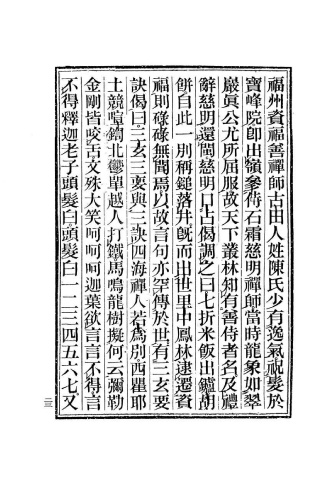 福州資福善禪師古田人姓陳氏少有逸氣祝髮於
寶峰院卽出嶺參侍石霜慈明禪師當時龍象如翠
巖眞公尤所屈服故天下叢林知有善侍者名及禮
辭慈明還閩慈明口占偈調之曰七折米飯出鑪胡
餅自此一別稱鎚落井旣而出世里中鳳林逮遷資
福則碌碌無聞焉以故言句亦罕傳於世有三玄要
訣偈曰三玄三要與三訣四海禪人若爲別西瞿耶
土競喧鍧北鬱單越人打鐵馬鳴龍樹擬何云彌勒
金剛皆咬舌文殊大笑呵呵呵迦葉欲言言不得言
不得釋迦老子頭髮白頭髮白一二三四五六七又
二三